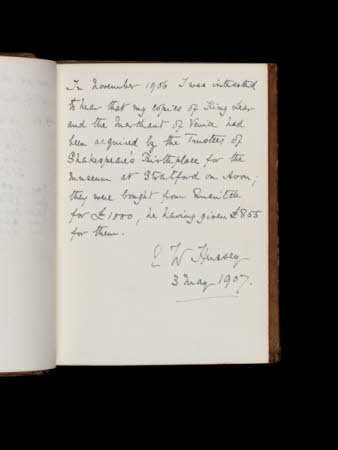 In November 1906 I was interested
to hear that my copies of King Lear
and the Merchant of Venice had
been acquired by the Trustees of
Shakespeare's Birthplace for the
Museum at Stratford on Avon;
they were bought from Quaritch
for £1000, he having given £855
for them.
E W Hussey
3 May 1907.